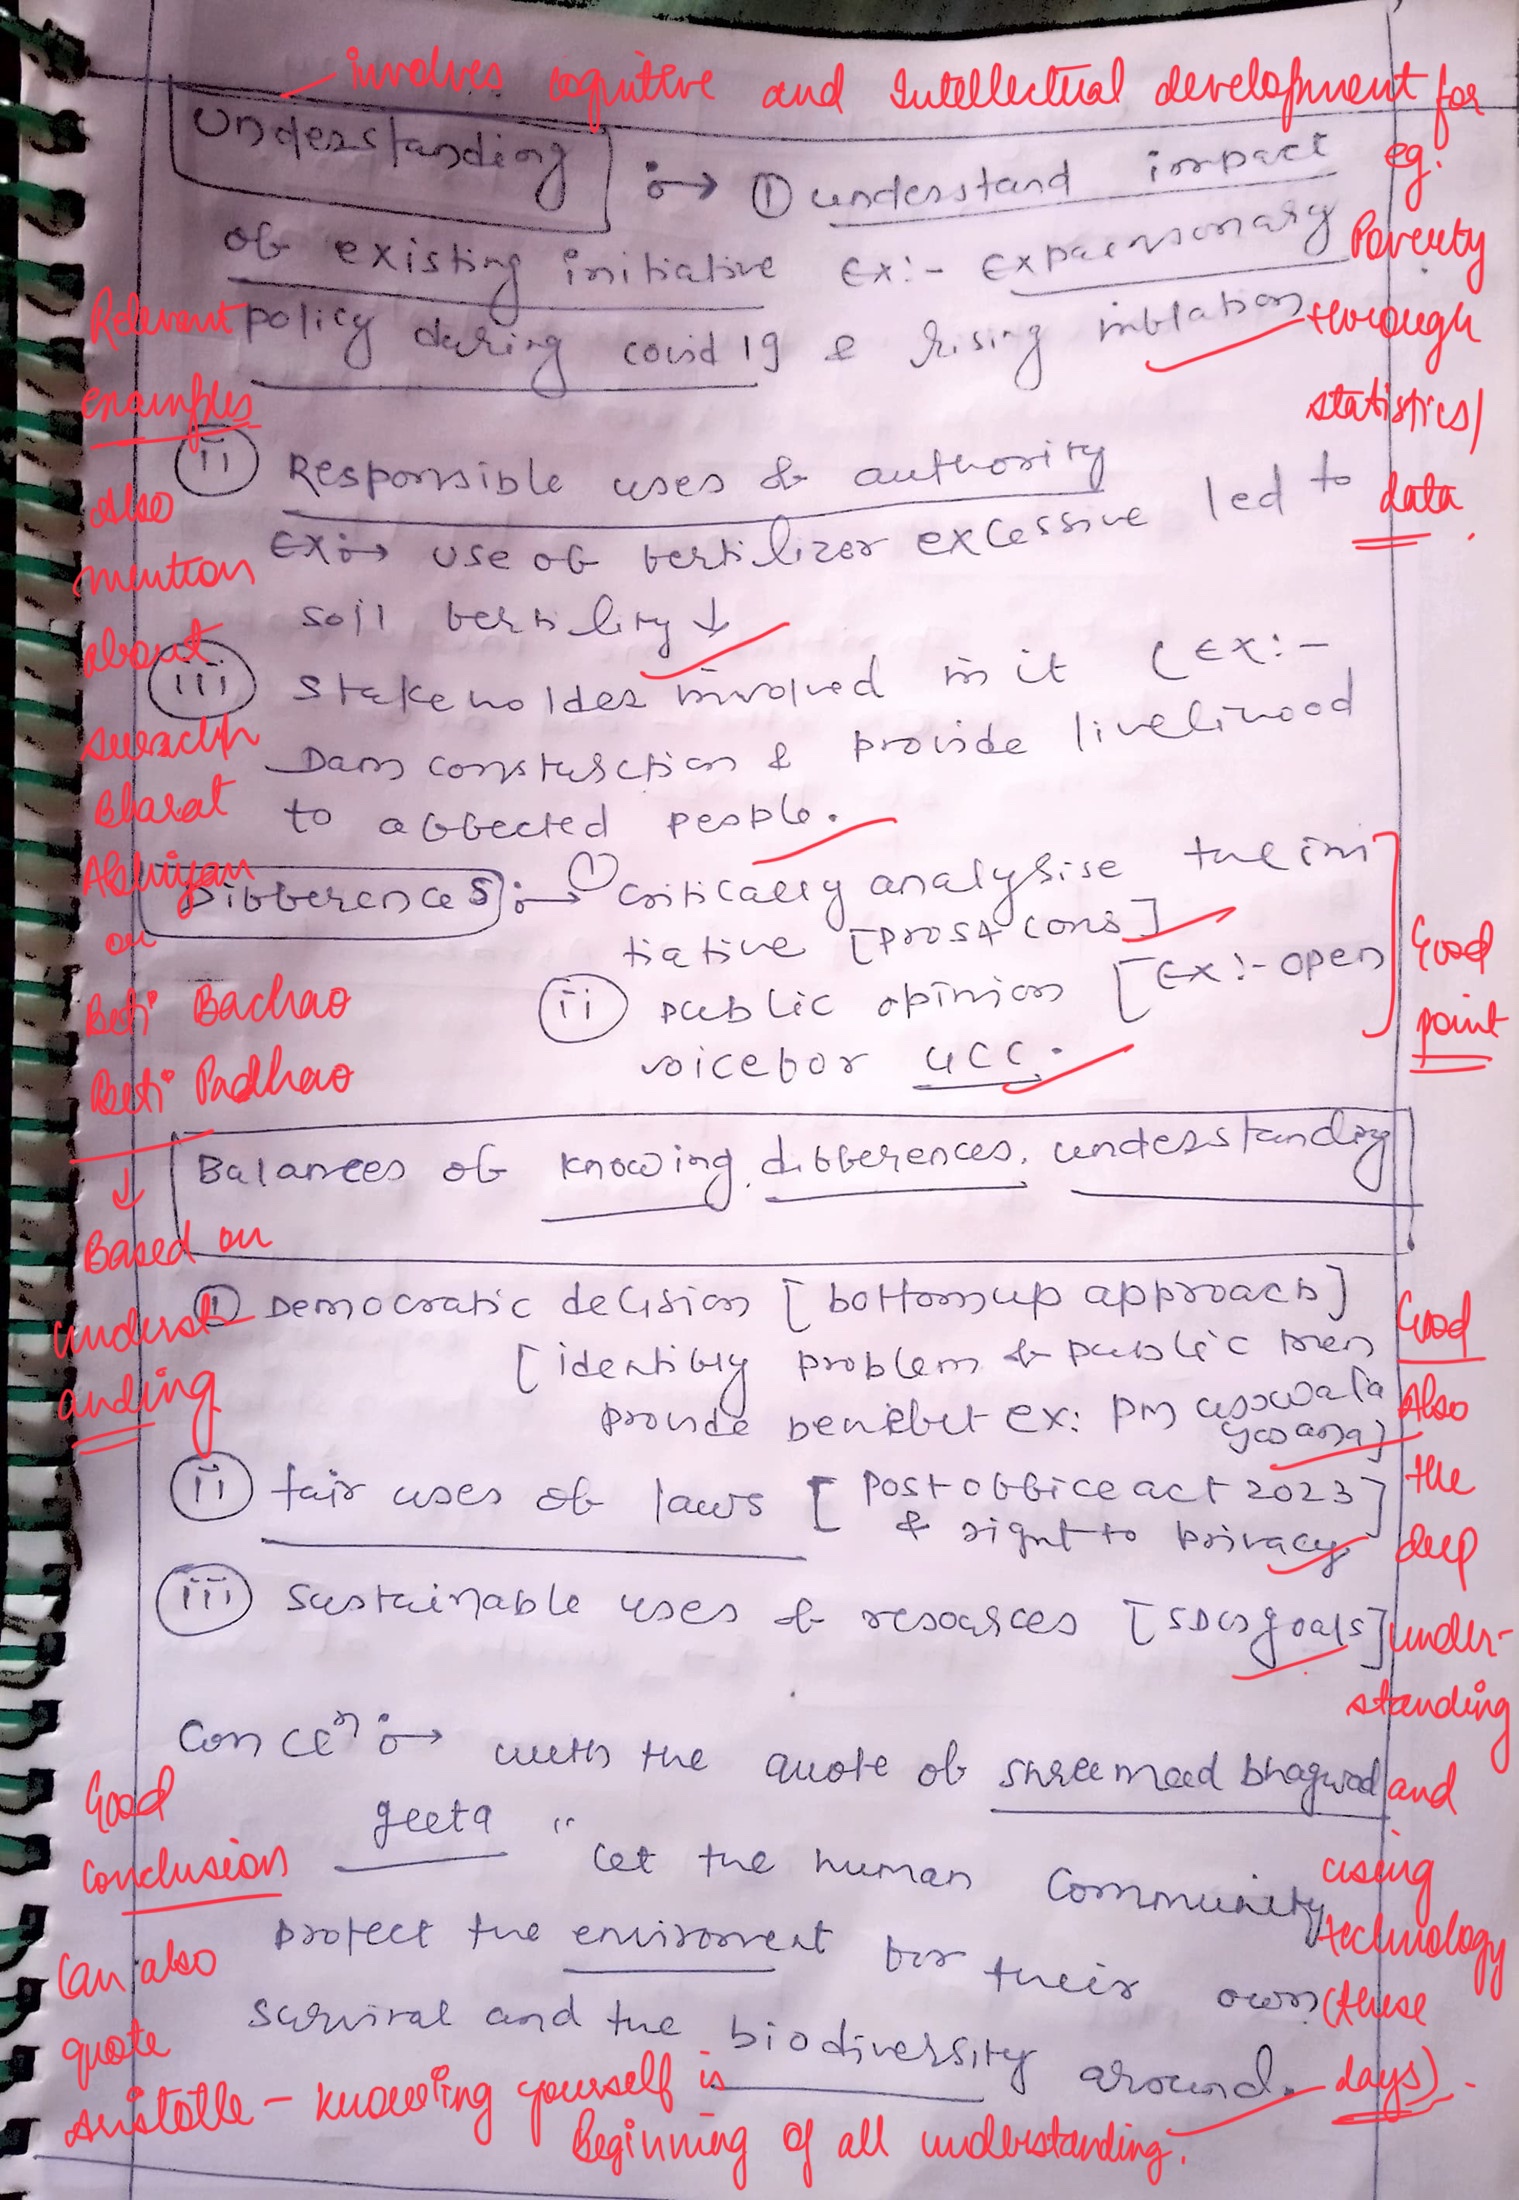 involves cognitive and Intellectual development for
eg.
Poverty
through
statistics/
data.
Understanding :→ ① understand impact
of existing initiative Ex:- Expaensonary
policy during covid 19 & rising inflation
Relevant
examples
Also
mention
about
Swachh
Bharat
Abhiyan
or
Beti Bachao
Beti Padhao
↓
Based on
underst
anding
(ii) Responsible uses of authority
Ex:→ use of fertilizer excessive led to
soil fertility ↓
(iii) Stakeholder involved in it (Ex:-
Dam construction & provide livelihood
to affected people.
Differences :→ (1) critically analysise the ini
tiative [pros & cons]
(ii) public opinion [Ex:- open
voice for UCC.
Good
point
Balances of knowing, differences, understanding
(1) Democratic decision [bottom up approach]
[identify problem of public then
provide benefit ex: PM ujjwala
yojana]
(ii) fair uses of laws [Post office act 2023]
& right to privacy
(iii) Sustainable uses of resources [SDGs goals]
Good
Also
the
deep
under-
standing
and
using
technology
(these
days).
Concln :→ with the quote of shreemad bhagwad
geeta " Let the human community
protect the enviroment for their own
survival and the biodiversity around.
Good
conclusion
Can also
quote
Aristotle - knowing yourself is
Beginning of all understanding.